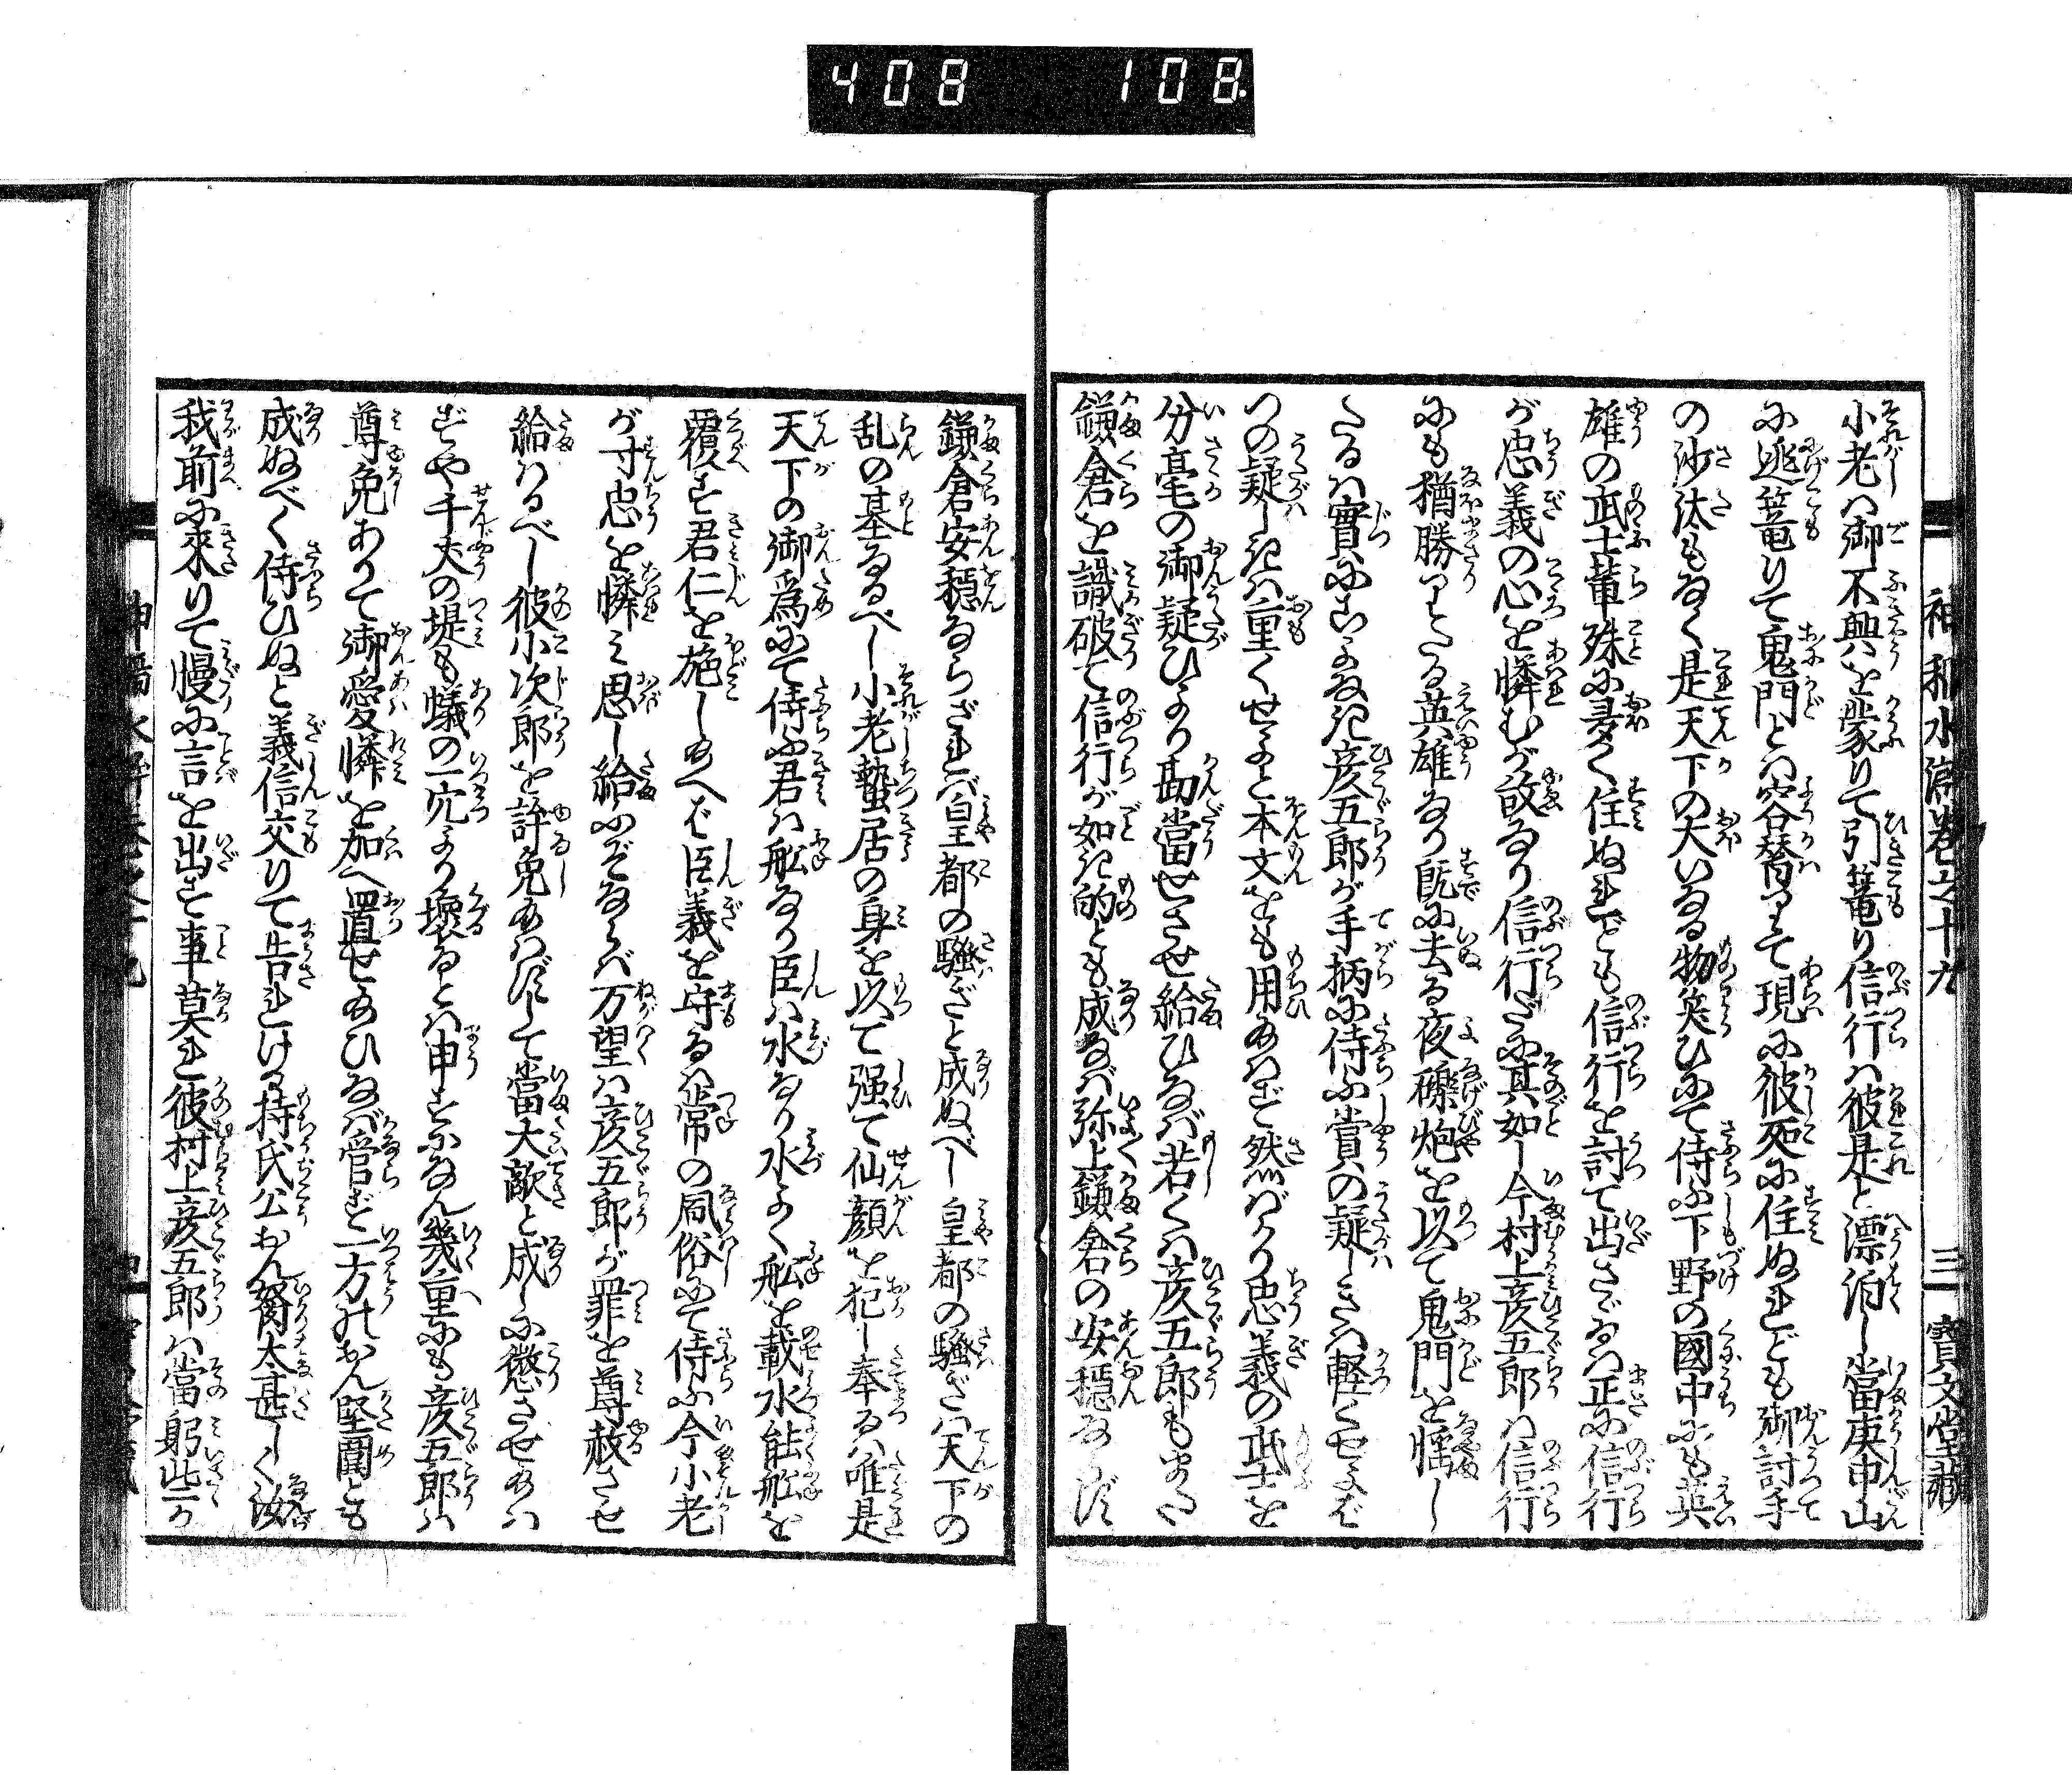 408 108
小老ハ御不興を蒙りて引篭り信行ハ彼是と漂泊し當庚申山
に逃篭りて鬼門とハ容替りて現に彼処に住ぬれども御討手
の沙汰もなく是天下の大いなる物笑ひにて侍ふ下野の國中にも英
雄の武士輩殊に多く住ぬれども信行を討て出さゞるハ正に信行
が忠義の心を憐むが故なり信行だに其如し今村上彦五郎ハ信行
にも猶勝りたる英雄なり既に去る夜礫炮を以て鬼門を悩し
たるハ實にこよなき彦五郎が手柄に侍ふ賞の疑しきハ軽くせよど
つの疑しきハ重くせよと本文をも用あハざて然バかり忠義の武士を
分毫の御疑ひより勘當せさせ給ひなバ若くハ彦五郎もまた
鎌倉を識破て信行が如き的とも成なバ弥上鎌倉の安穏なるまじ
鎌倉安穏ならざれバ皇都の騒ぎと成ぬべし皇都の騒ぎハ天下の
乱の基なるべし小老蟄居の身を以て强て仙顔を犯し奉るハ唯是
天下の御爲にて侍ふ君ハ舩なり臣ハ水なり水よく舩を載水能舩を
覆す君仁を施しあへバ臣義を守るハ常の風俗にて侍ふ今小老
が寸忠を憐ミ思し給ふぞならバ万望ハ彦五郎が罪を尊赦させ
給ハるべし彼小次郎を許免あハずして當大敵と成しに懲させあハ
ずや千丈の堤も蟻の一穴より壊るとハ申すになん幾重にも彦五郎ハ
尊免ありて御愛憐を加へ置せあひなバ管ず一方のおん堅固とも
成ぬべく侍ひぬと義信交りて告れける持氏公おん怒太甚しく汝
我前に来りて慢に言を出す事莫れ彼村上彦五郎ハ當躬些か
三 寳文堂藏